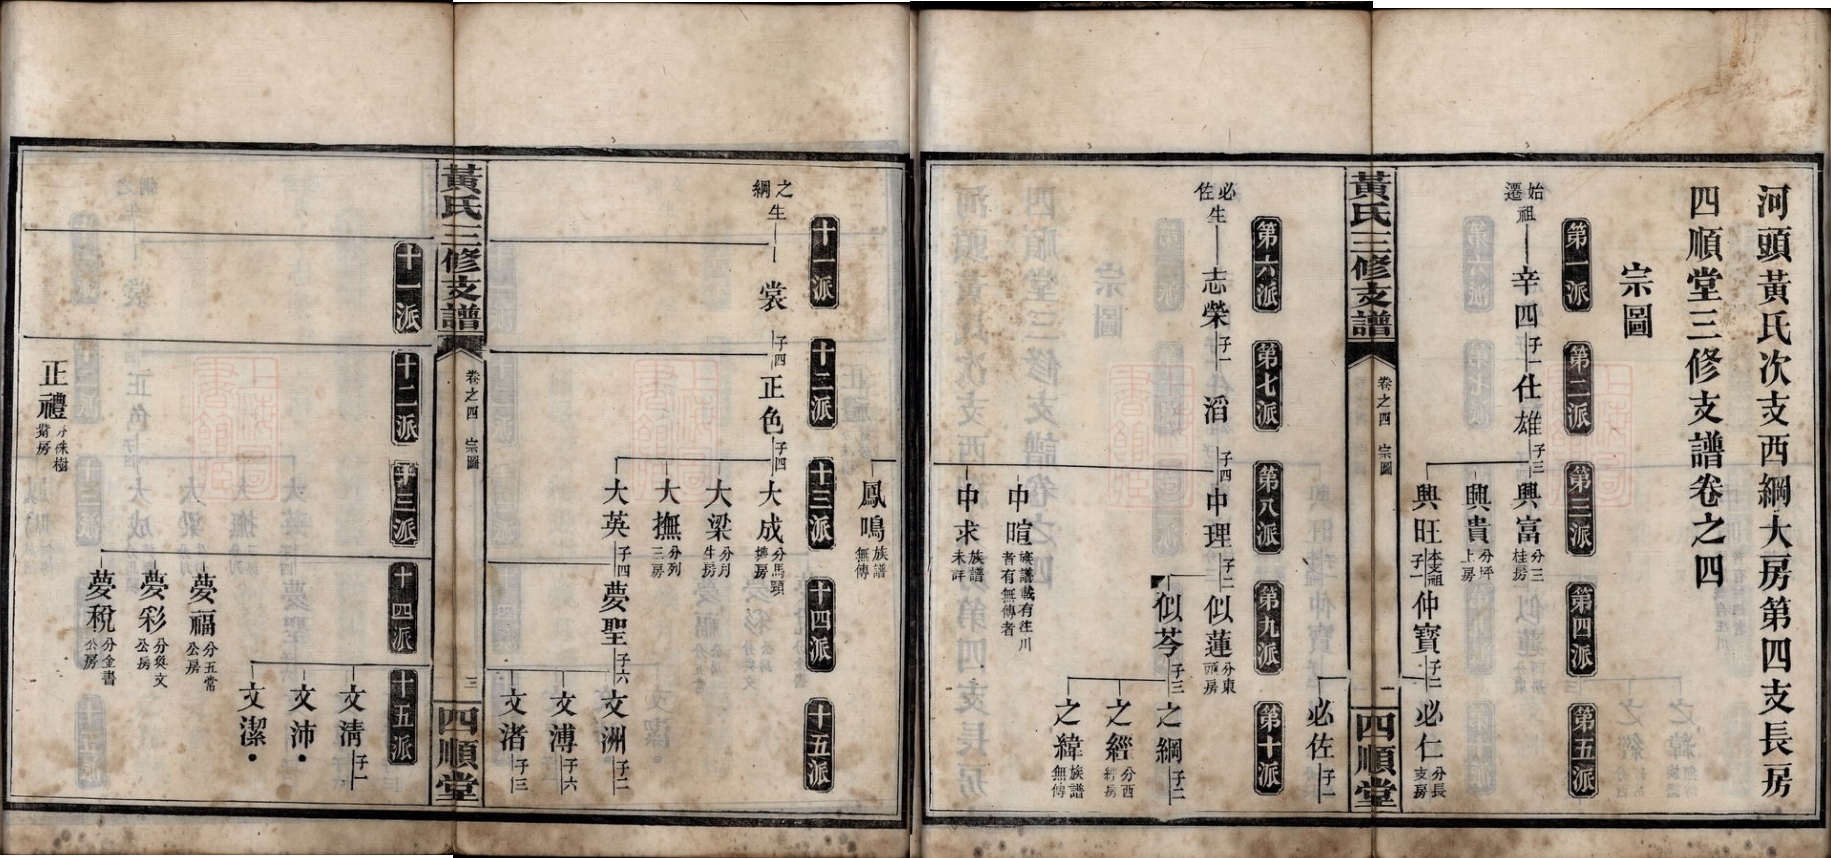 河頭黃氏次支西綱大房第四支長房
四順堂三修支譜卷之四
宗圖
第一派 第二派 第三派 第四派 第五派
始遷祖 辛四 子一 仕雄 子三 興富 分三桂房
興貴 分坪上房
興旺 本支祖 子一 仲寶 子二 必仁 分長支房
黃氏三修支譜 卷之四 宗圖 一 四順堂
必佐 子一
第六派 第七派 第八派 第九派 第十派
必佐生 志榮 子一 滔 子四 中理 子二 似蓮 分東頭房
似芩 子三 之綱 子二
之經 分西房
之緯 族譜無傳
中暄 族譜載有往川者有無傳者
中求 族譜未詳
鳳鳴 族譜無傳
十一派 十二派 十三派 十四派 十五派
之綱生 裳 子四 正色 子四 大成 分馬頸房
大梁 分月生房
大撫 分列三房
大英 子四 夢聖 子六 文洲 子二
文溥 子六
文渚 子三
黃氏三修支譜 卷之四 宗圖 三 四順堂
十一派 十二派 十三派 十四派 十五派
文淸 子一
文沛
文潔
夢福 分五常公房
夢彩 分煥文公房
夢稅 分金書公房
正禮 分株樹房